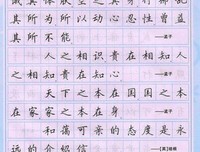 其所为所以动心忍性曾益
其所不能
——孟子
人之相识贵在相知人
之相知贵在知心
——孟子
天下之本在国国之本
在家家之本在身
——孟子
和蔼可亲的态度是永
远的介绍信
——【英】培根